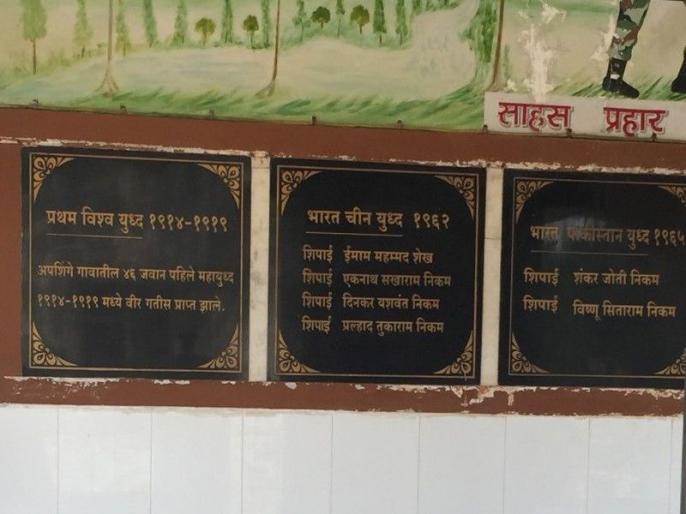 साहस प्रहार
प्रथम विश्व युध्द १९१४-१९१९
अपशिंगे गावातील ४६ जवान पहिले महायुध्द
१९१४-१९१९ मध्ये वीर गतीस प्राप्त झाले.
भारत चीन युध्द १९६२
शिपाई ईमाम महम्मद शेख
शिपाई एकनाथ सखाराम निकम
शिपाई दिनकर यशवंत निकम
शिपाई प्रल्हाद तुकाराम निकम
भारत पाकीस्तान युध्द १९६५
शिपाई शंकर जोती निकम
शिपाई विष्णू सिताराम निकम